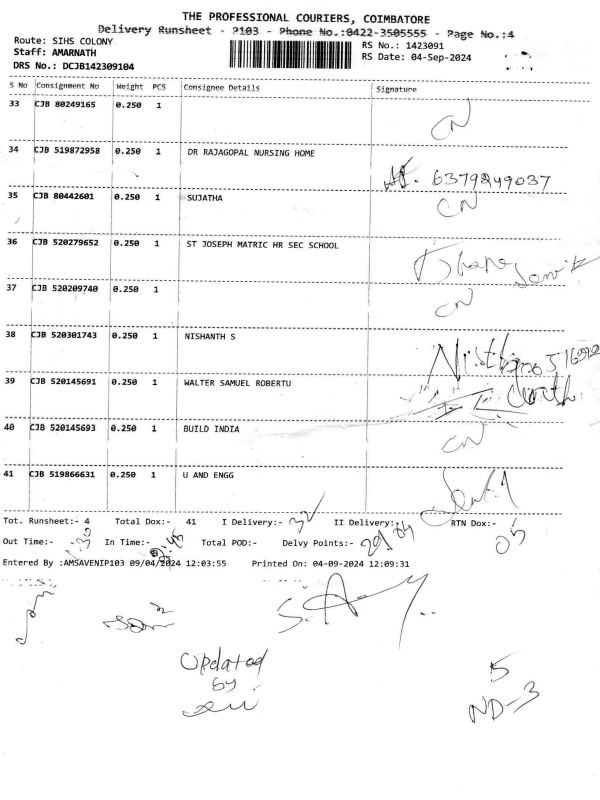 THE PROFESSIONAL COURIERS, COIMBATORE
Delivery Runsheet - P103 - Phone No.:0422-3505555 - Page No.:4
Route: SIHS COLONY
RS No.: 1423091
Staff: AMARNATH
RS Date: 04-Sep-2024
DRS No.: DCJB142309104
S No Consignment No Weight PCS Consignee Details Signature
33 CJB 80249165 0.250 1 CN
34 CJB 519872958 0.250 1 DR RAJAGOPAL NURSING HOME
6379249037
35 CJB 80442601 0.250 1 SUJATHA CN
36 CJB 520279652 0.250 1 ST JOSEPH MATRIC HR SEC SCHOOL
37 CJB 520209740 0.250 1 CN
38 CJB 520301743 0.250 1 NISHANTH S
39 CJB 520145691 0.250 1 WALTER SAMUEL ROBERTU
40 CJB 520145693 0.250 1 BUILD INDIA CN
41 CJB 519866631 0.250 1 U AND ENGG
Tot. Runsheet:- 4 Total Dox:- 41 I Delivery:- 32 II Delivery:- RTN Dox:- 05
Out Time:- In Time:- Total POD:- Delvy Points:- 29/04
Entered By :AMSAVENIP103 09/04/2024 12:03:55 Printed On: 04-09-2024 12:09:31
Updated
by
5
ND-3